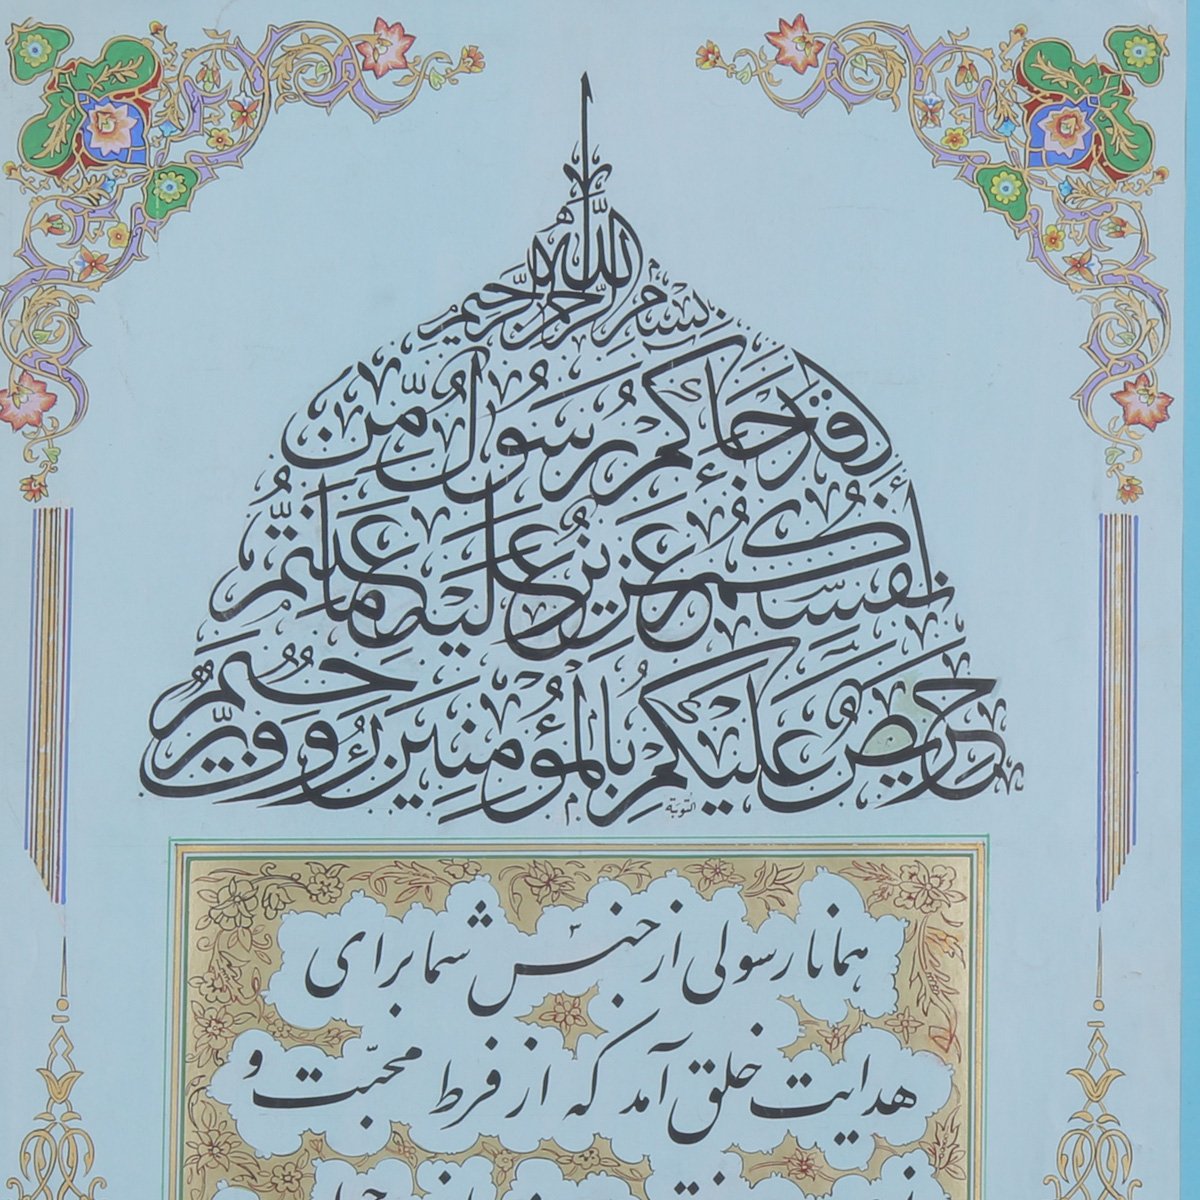 بسم الله الرحمن الرحیم
لَقَدْ جَاءَكُمْ رَسُولٌ مِّنْ
أَنفُسِكُمْ عَزِيزٌ عَلَيْهِ مَا عَنِتُّمْ
حَرِيصٌ عَلَيْكُم بِالْمُؤْمِنِينَ رَءُوفٌ رَّحِيمٌ
التوبة
همانا رسولی از جنس شما برای
هدایت خلق آمد که از فرط محبّت و